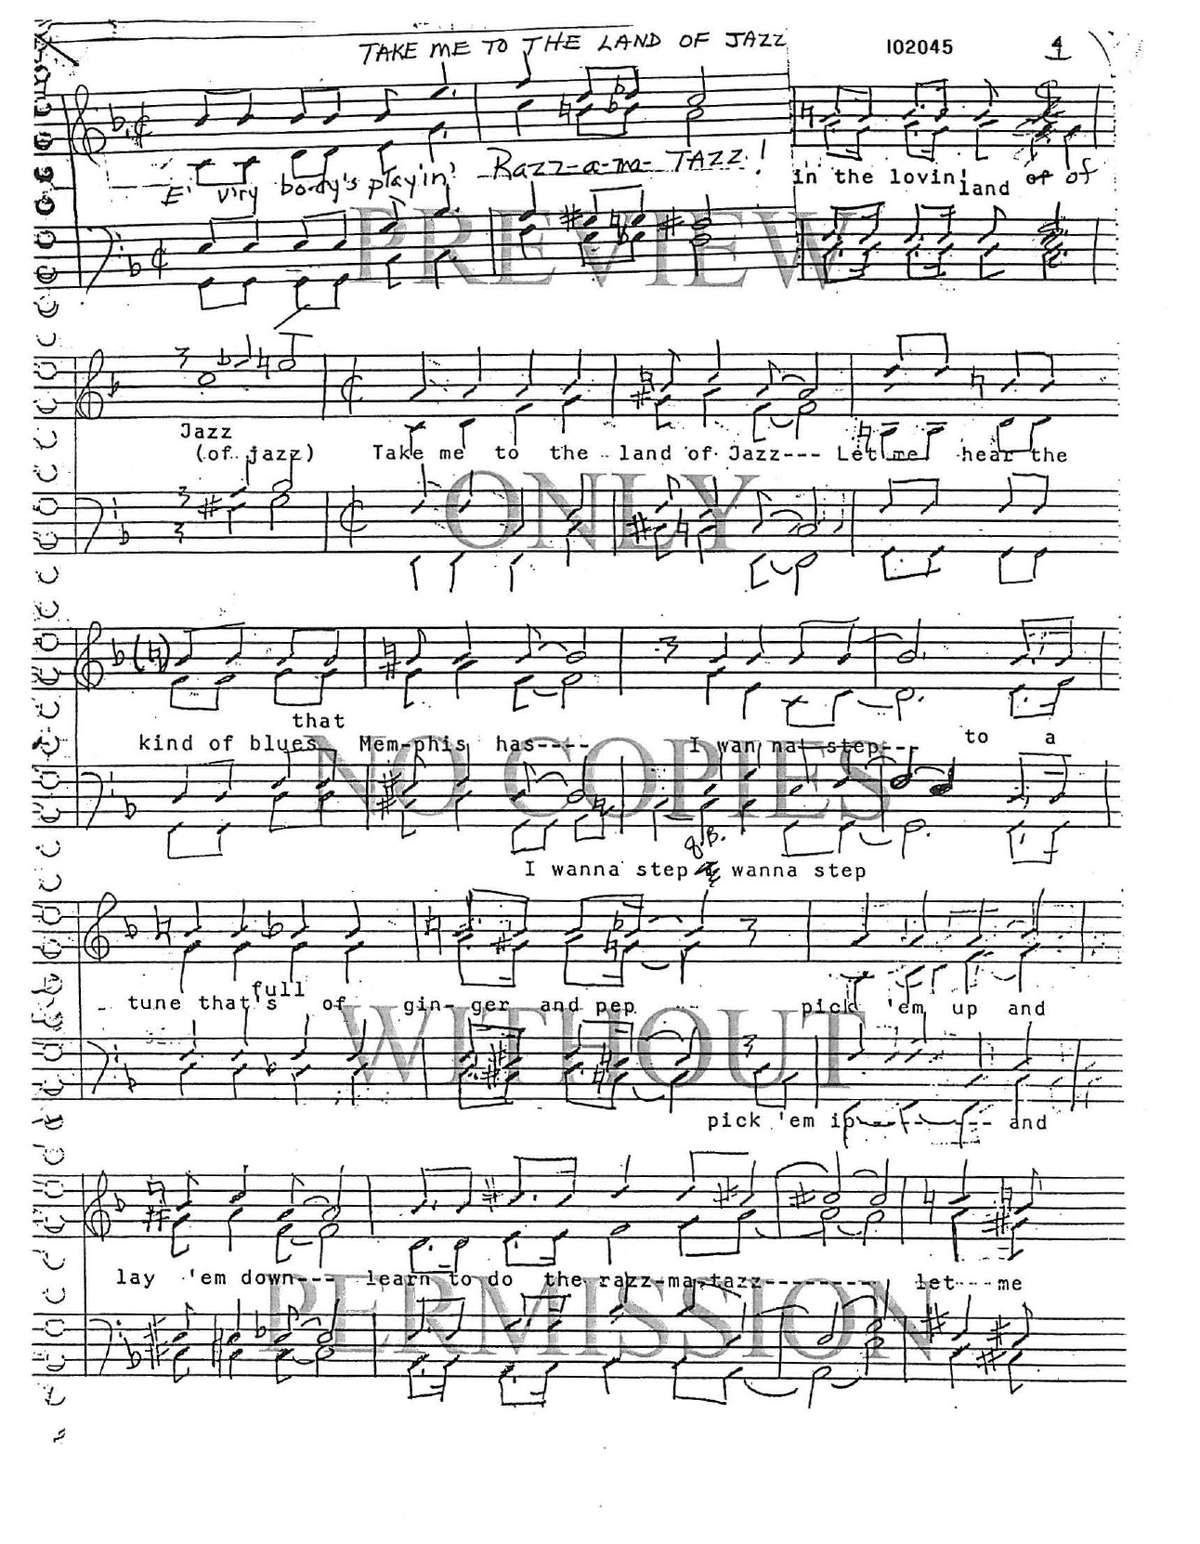 TAKE ME TO THE LAND OF JAZZ 102045 4
E' v'ry bo-dy's playin' Razz-a-ma-TAZZ! in the lovin' land of of
PREVIEW
Jazz
(of jazz) Take me to the land of Jazz--- Let me hear the
ONLY
that
kind of blues Mem-phis has---- I wan na step--- to a
NO COPIES
I wanna step I wanna step
full
tune that's of gin-ger and pep pick 'em up and
WITHOUT
pick 'em ip-------- and
lay 'em down--- learn to do the razz-ma-tazz--------- let me
PERMISSION